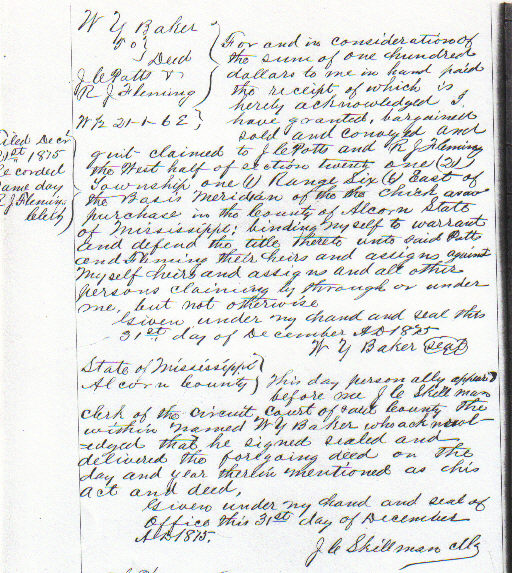 W Y Baker
To } Deed
J C Potts &
R J Fleming
W½ 21-1-6 E }
Filed Decr
31st 1875
Recorded
same day
R J Fleming
Clerk
For and in consideration of
the sum of one hundred
dollars to me in hand paid
the receipt of which is
hereby acknowledged I
have granted, bargained
sold and conveyed and
quit claimed to J C Potts and R J Fleming
the West half of section twenty one (21)
Township one (1) Range Six (6) East of
the Basis Meridian of the the Chickasaw
purchase in the County of Alcorn State
of Mississippi; binding myself to warrant
and defend the title thereto unto said Potts
and Fleming their heirs and assigns against
myself heirs and assigns and all other
persons claiming by through or under
me, but not otherwise
Given under my hand and seal this
31st day of December AD 1875
W Y Baker seal
State of Mississippi }
Alcorn County } This day personally appeard
before me J C Skillman
clerk of the circuit court of said County the
within named W Y Baker who acknowl-
edged that he signed sealed and
delivered the foregoing deed on the
day and year therein mentioned as his
act and deed,
Given under my hand and seal of
Office this 31st day of December
AD 1875.
J C Skillman Clk